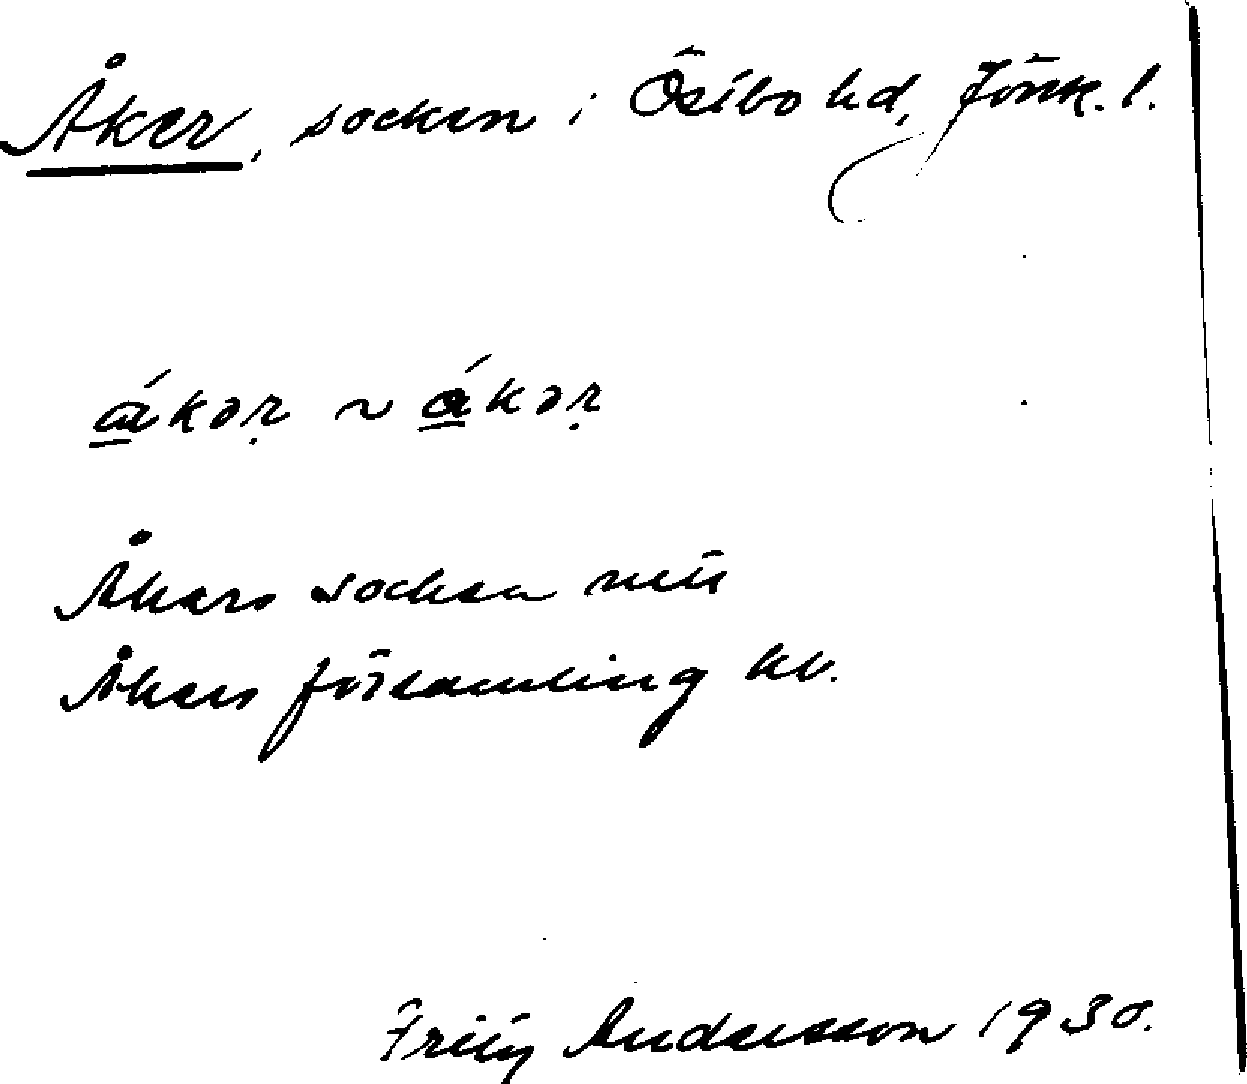 Åker, socken i Östbo hd, Jönk. l.
ákər ~ ákər
Åkers socken
Åkers församling kb.
Andersson 1930.